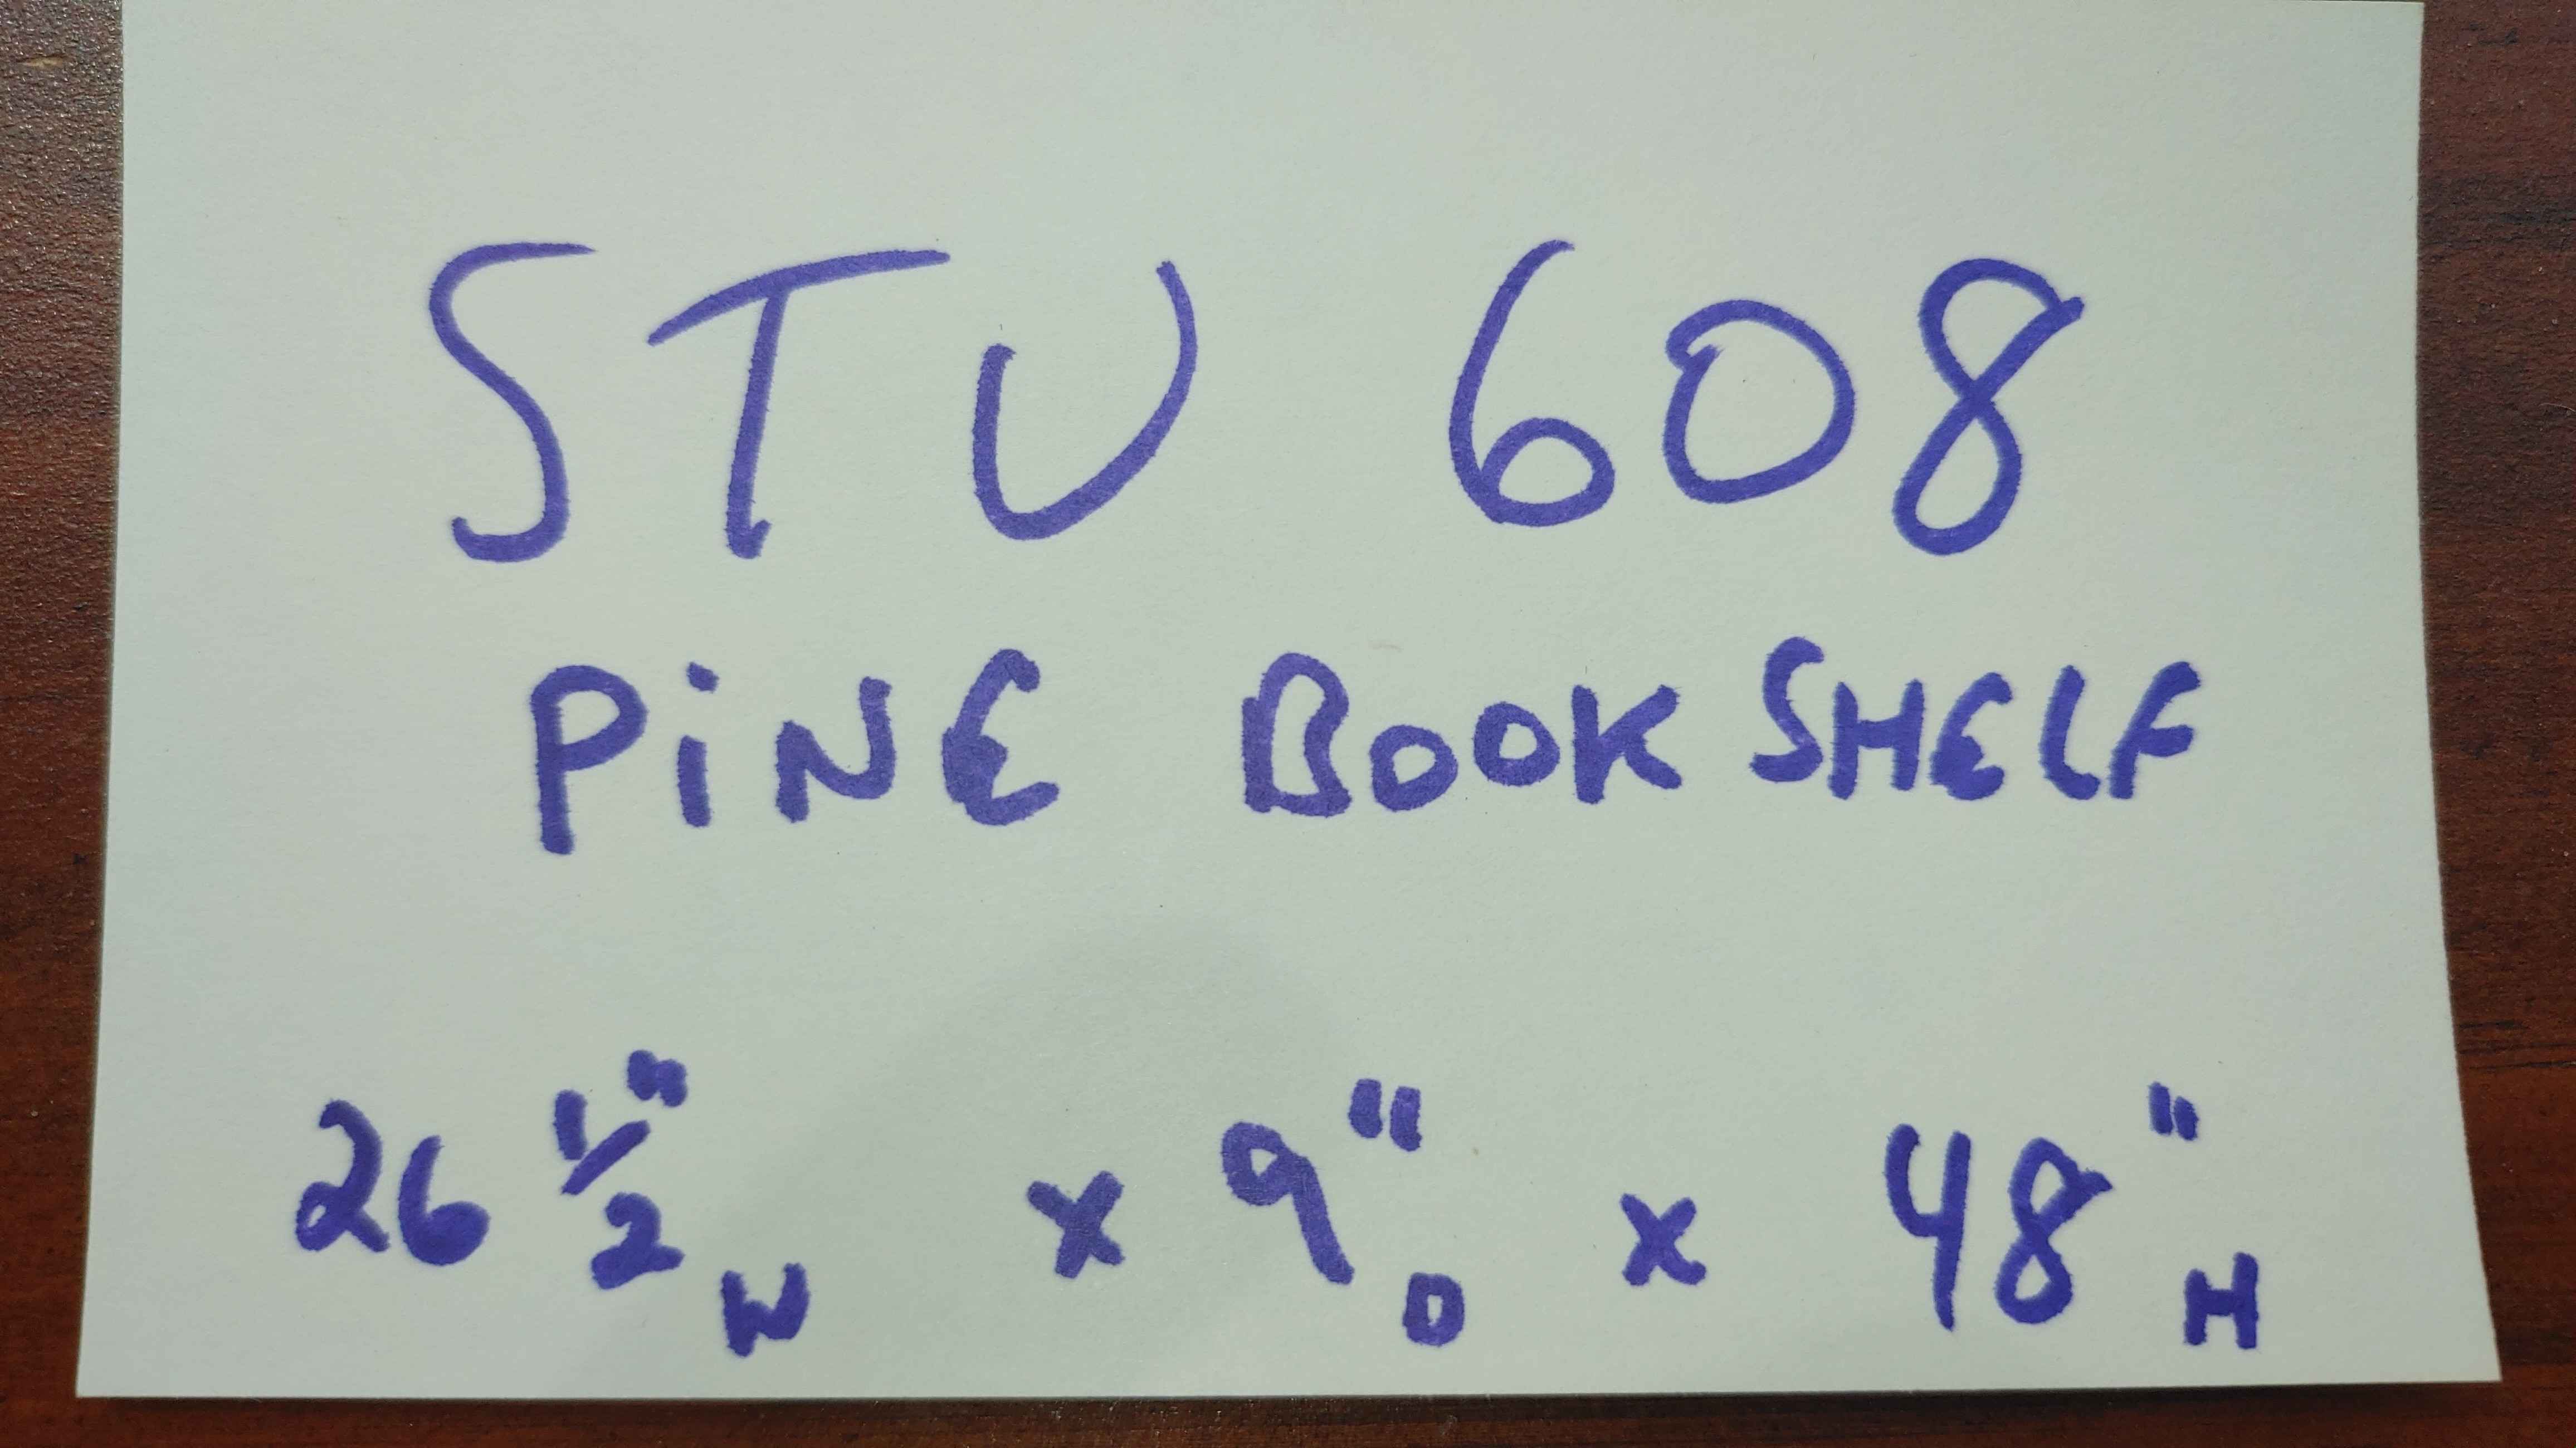 STU 608
PiNE BOOK SHELF
26 1/2" W x 9" D x 48" H